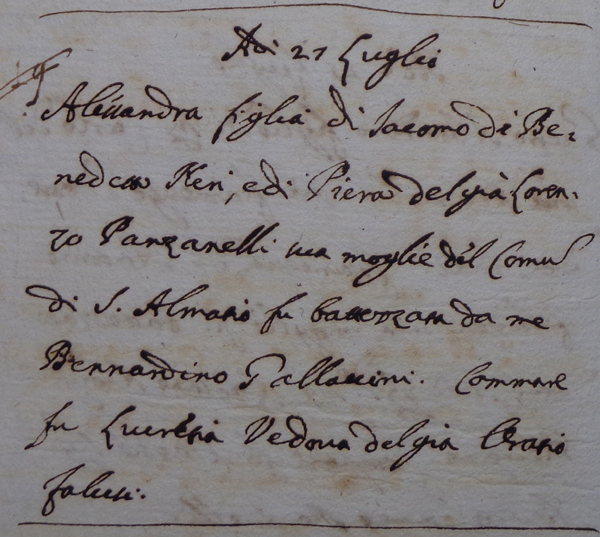 Adi 27 Luglio
Alessandra figlia di Iacomo di Be-
nedetto Neri, e di Piera del già Loren-
zo Panzanelli sua moglie del Comu
di S. Almazio fu battezzata da me
Bernardino Pallassini. Commare
fu Lucrezia Vedova del già Orazio